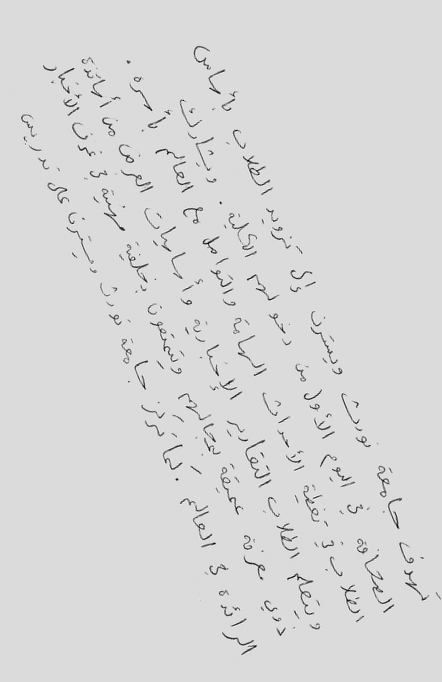 تهدف جامعة نورث ويسترن إلى تزويد الطلاب بأساس
الصحافة في اليوم الأول من دخولهم الكلية. ويشارك
الطلاب في تغطية الأحداث الهامة والتواصل مع العالم بأسره.
ويتعلم الطلاب التقارير الأخبارية وأساسيات العرض من أساتذة
ذوي معرفة عميقة بمجالهم ويتمتعون بخلفية مهنية في غرف الأخبار
الرائدة في العالم. كما تركز جامعة نورث ويسترن على تدريس